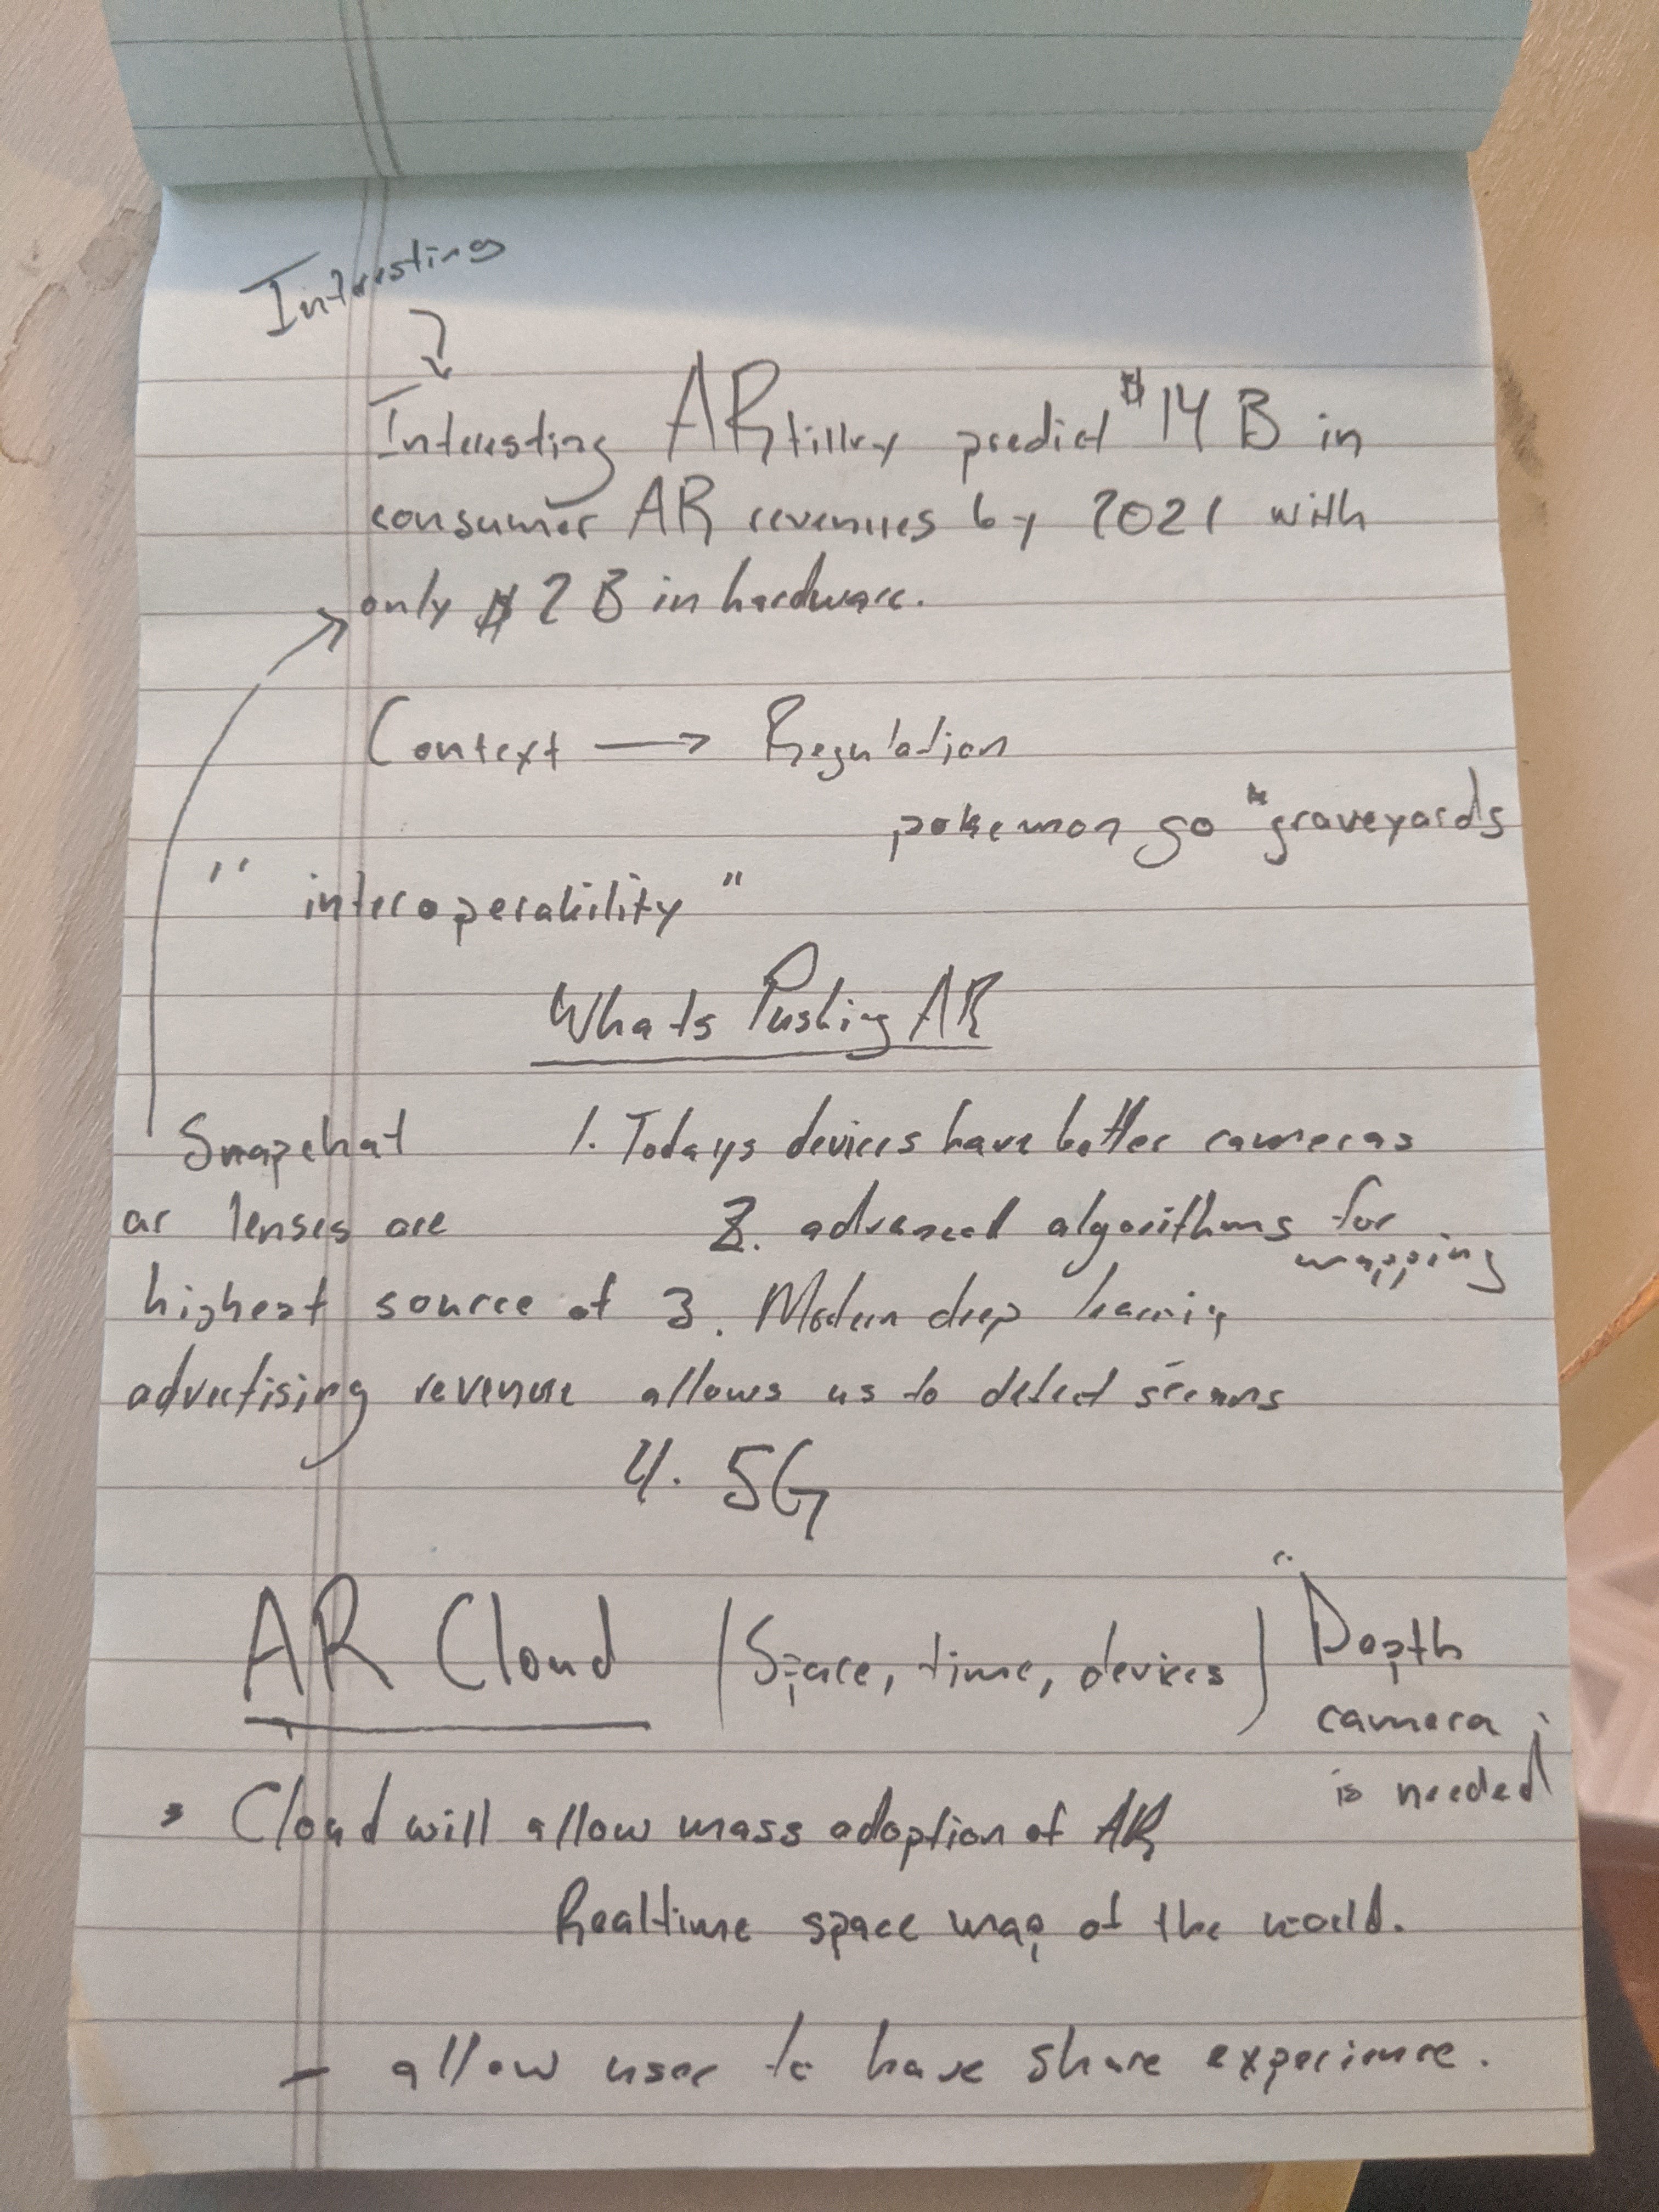 Interesting
Interesting ARtillry predict $14 B in
consumer AR revenues by 2021 with
only $2 B in hardware.
Context → Regulation
pokemon go "graveyards
"interoperability"
Whats Pushing AR
Snapchat
ar lenses are
highest source of
advertising revenue
1. Todays devices have better cameras
2. advanced algorithms for
mapping
3. Modern deep learning
allows us to detect
4. 5G
AR Cloud (Space, time, devices)
"Depth
camera
is needed
Cloud will allow mass adoption of AR
Realtime space map of the world.
- allow user to have share experience.